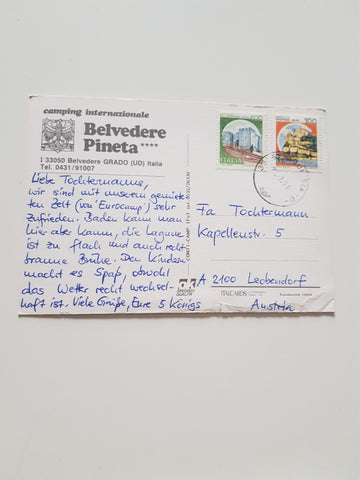 camping internazionale
Belvedere
Pineta ****
I 33050 Belvedere GRADO (UD) Italia
Tel. 0431/91007
Liebe Tochtermanns,
wir sind mit unserem gemiete-
ten Zelt (von Eurocamp) sehr
zufrieden. Baden kann man
hier aber kaum, die Lagune
ist zu flach und auch recht
braune Brühe. Den Kindern
macht es Spaß, obwohl
das Wetter recht wechsel-
haft ist. Viele Grüße, Eure 5 Königs
400
ITALIA
100
Fa Tochtermann
Kapellenstr. 5
A 2100 Leobendorf
Austria
ITALCARDS